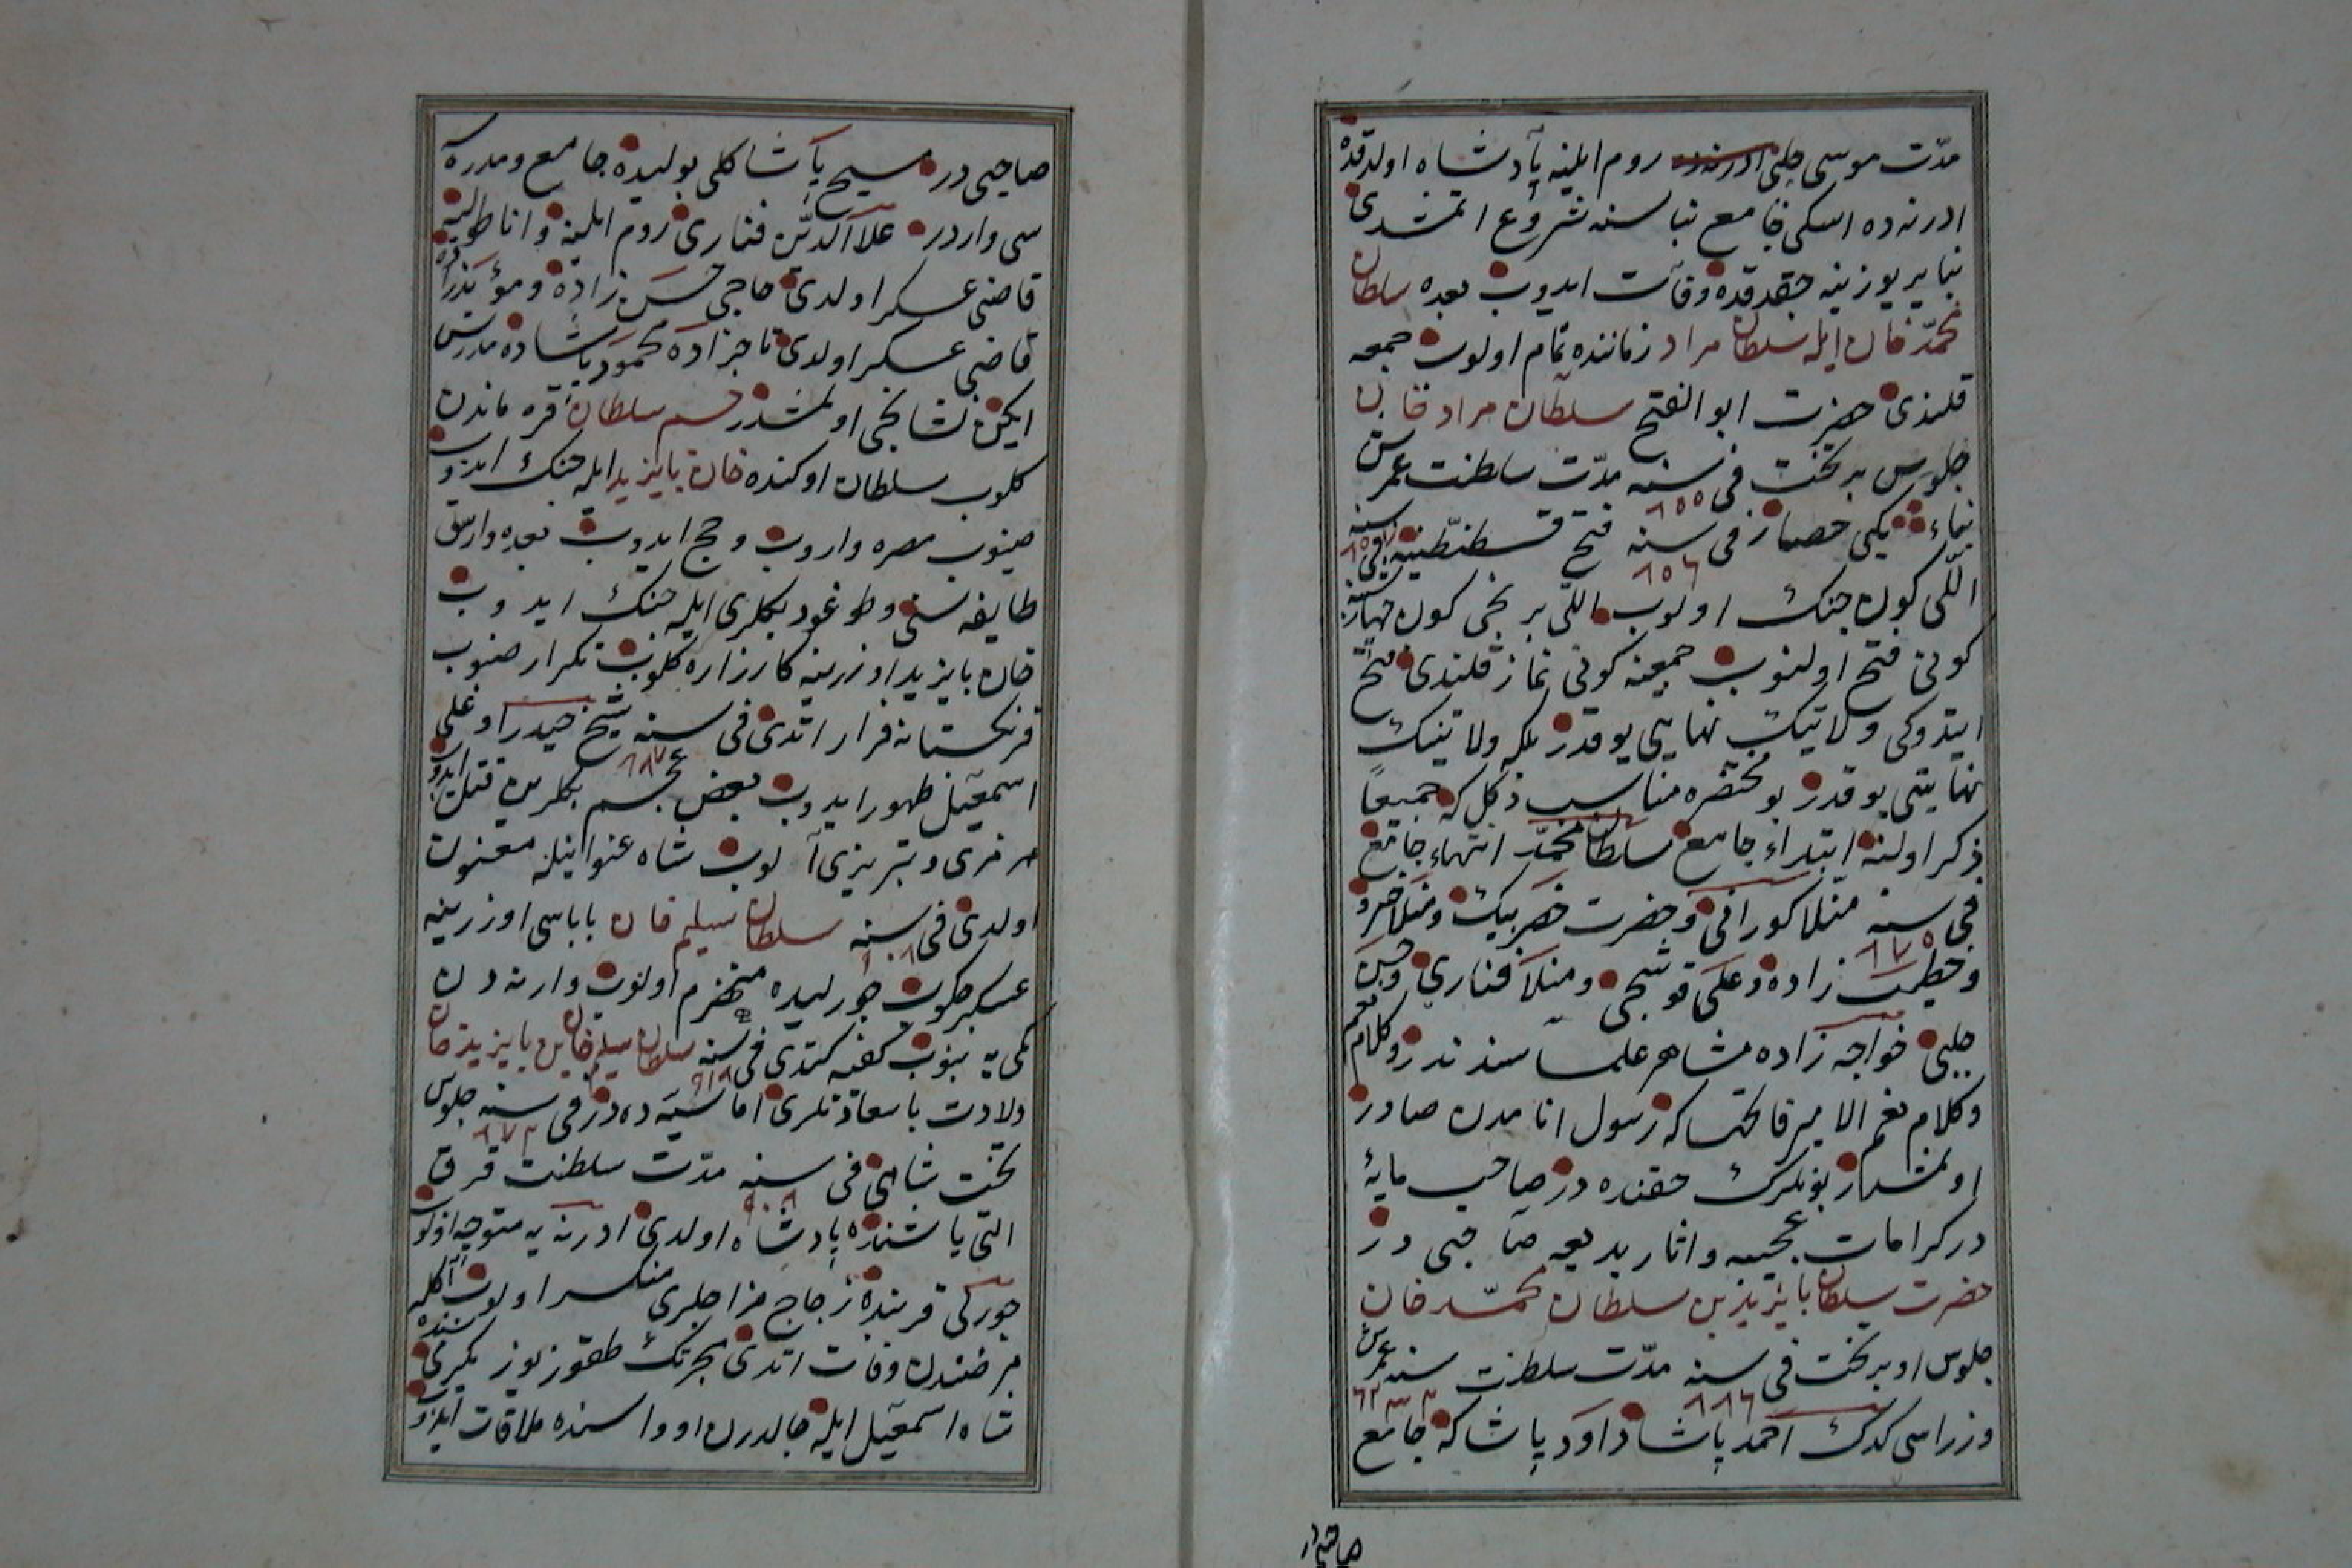 مدّت موسی چلبی روم ایلینه پادشاه اولدقده
ادرنه ده اسکی جامع بناسنه شروع اتمشدی
بنا یر یوزینه چقدقده وفات ایدوب بعده سلطان
محمّد خان ایله سلطان مراد زماننده تمام اولوب جمعه
قلندی حضرت ابو الفتح سلطان مراد خان
جلوس بر تخت فی سنه ٨٥٥ مدّت سلطنت عمرش
بناء یکی حصار فی سنه ٨٥٦ فتح قسطنطنیه فی سنه
اللّی کون جنک اولوب اللّی برنجی کون چهارشنبه
کونی فتح اولنوب جمعه کونی نماز قلندی فتح
ایتدوکی ولایتک نهایتی یوقدر بلکه ولایتنک
نهایتی یوقدر بو مختصره مناسب دکل که جمیعاً
ذکر اولنه ابتداء جامع سلطان محمّد انتهاء جامع
فی سنه ٨٧٥ منلا کورانی و حضرت خضر بیک و منلا خسرو
و خطیب زاده و علی قوشجی و منلا فناری و حسن
چلبی خواجه زاده مشاهر علماسندندر و کلام نعم
وکلام نعم الامیر فاتحها که رسول انامدن صادر
اولمشدر بونلرک حقنده در صاحب مایۀ
در کرامات عجیبه و اثار بدیعه صاحبی در
حضرت سلطان بایزید بن سلطان محمّد خان
جلوس او بر تخت فی سنه ٨٨٦ مدّت سلطنت سنه عمرش
وزراسی کدک احمد پاشا داود پاشا که جامع
صاحبیدر
صاحبی در مسیح پاشا کلی بولیده جامع و مدرسه
سی واردر علاالدّین فناری روم ایلینه و اناطولیه
قاضی عسکر اولدی حاجی حسن زاده و مؤیدزاده
قاضی عسکر اولدی تاجزاده محمود پاشاده مدرس
ایکن نشانجی اولمشدر جم سلطان قره ماندن
کلوب سلطان اوکنده خان بایزید ایله جنک ایدوب
صنوب مصره واروب و حج ایدوب بعده وارسق
طایفه سنی و طوغود بکلری ایله جنک ایدوب
خان بایزید اوزرینه کارزاره کلوب تکرار صنوب
فرنکستانه فرار اتدی فی سنه ٨٨٧ شیخ حیدر اوغلی
اسمعیل ظهور ایدوب بعض عجم بکلرین قتل ایدوب
مرندی و تبریزی آلوب شاه عنوانیله معنون
اولدی فی سنه سلطان سلیم خان باباسی اوزرینه
عسکر چکوب چورلیده منهزم اولوب وارنه دن
کمی یه بنوب کفه کتدی فی سنه ٩١٨ سلطان سلیم خان بن بایزید خان
ولادت باسعادتلری اماسیه ده در فی سنه ٨٧٢ جلوس
تخت شاهی فی سنه مدّت سلطنت قرق
التی یاشنده پادشاه اولدی ادرنه یه متوجه اولوب
چورلی قربنده مزاجلری منکسر اولوب اکله
مرضندن وفات اتدی هجرتک طقوز یوز یکرمی سنده
شاه اسمعیل ایله چالدران اوواسنده ملاقات ایدوب